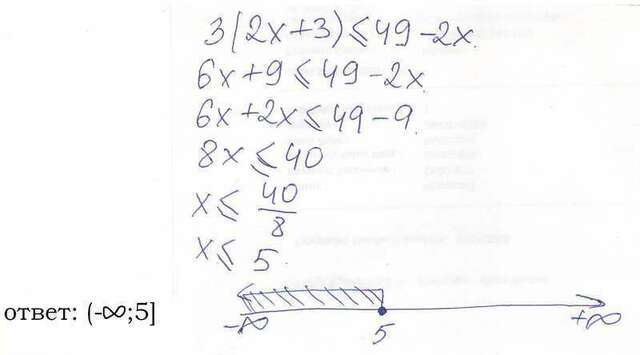 3(2x+3)⩽49-2x.
6x+9⩽49-2x
6x+2x⩽49-9.
8x⩽40
x⩽ 40/8
x⩽ 5
ответ: (-∞;5]
-∞ 5 +∞